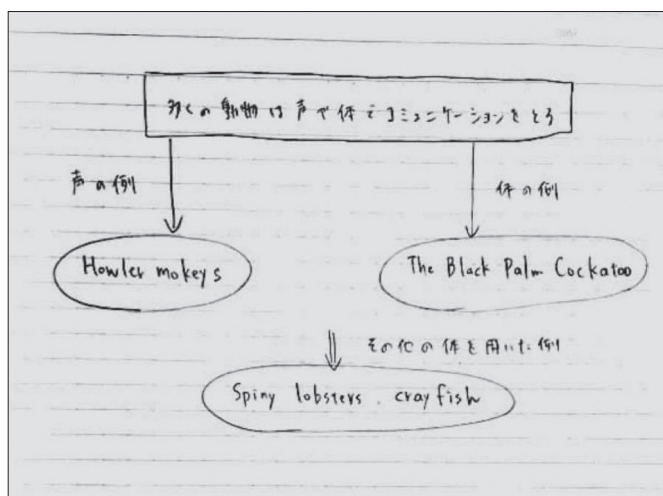 多くの動物は声や体でコミュニケーションをとる
声の例
体の例
Howler mokeys
The Black Palm Cockatoo
その他の体を用いた例
Spiny lobsters. crayfish